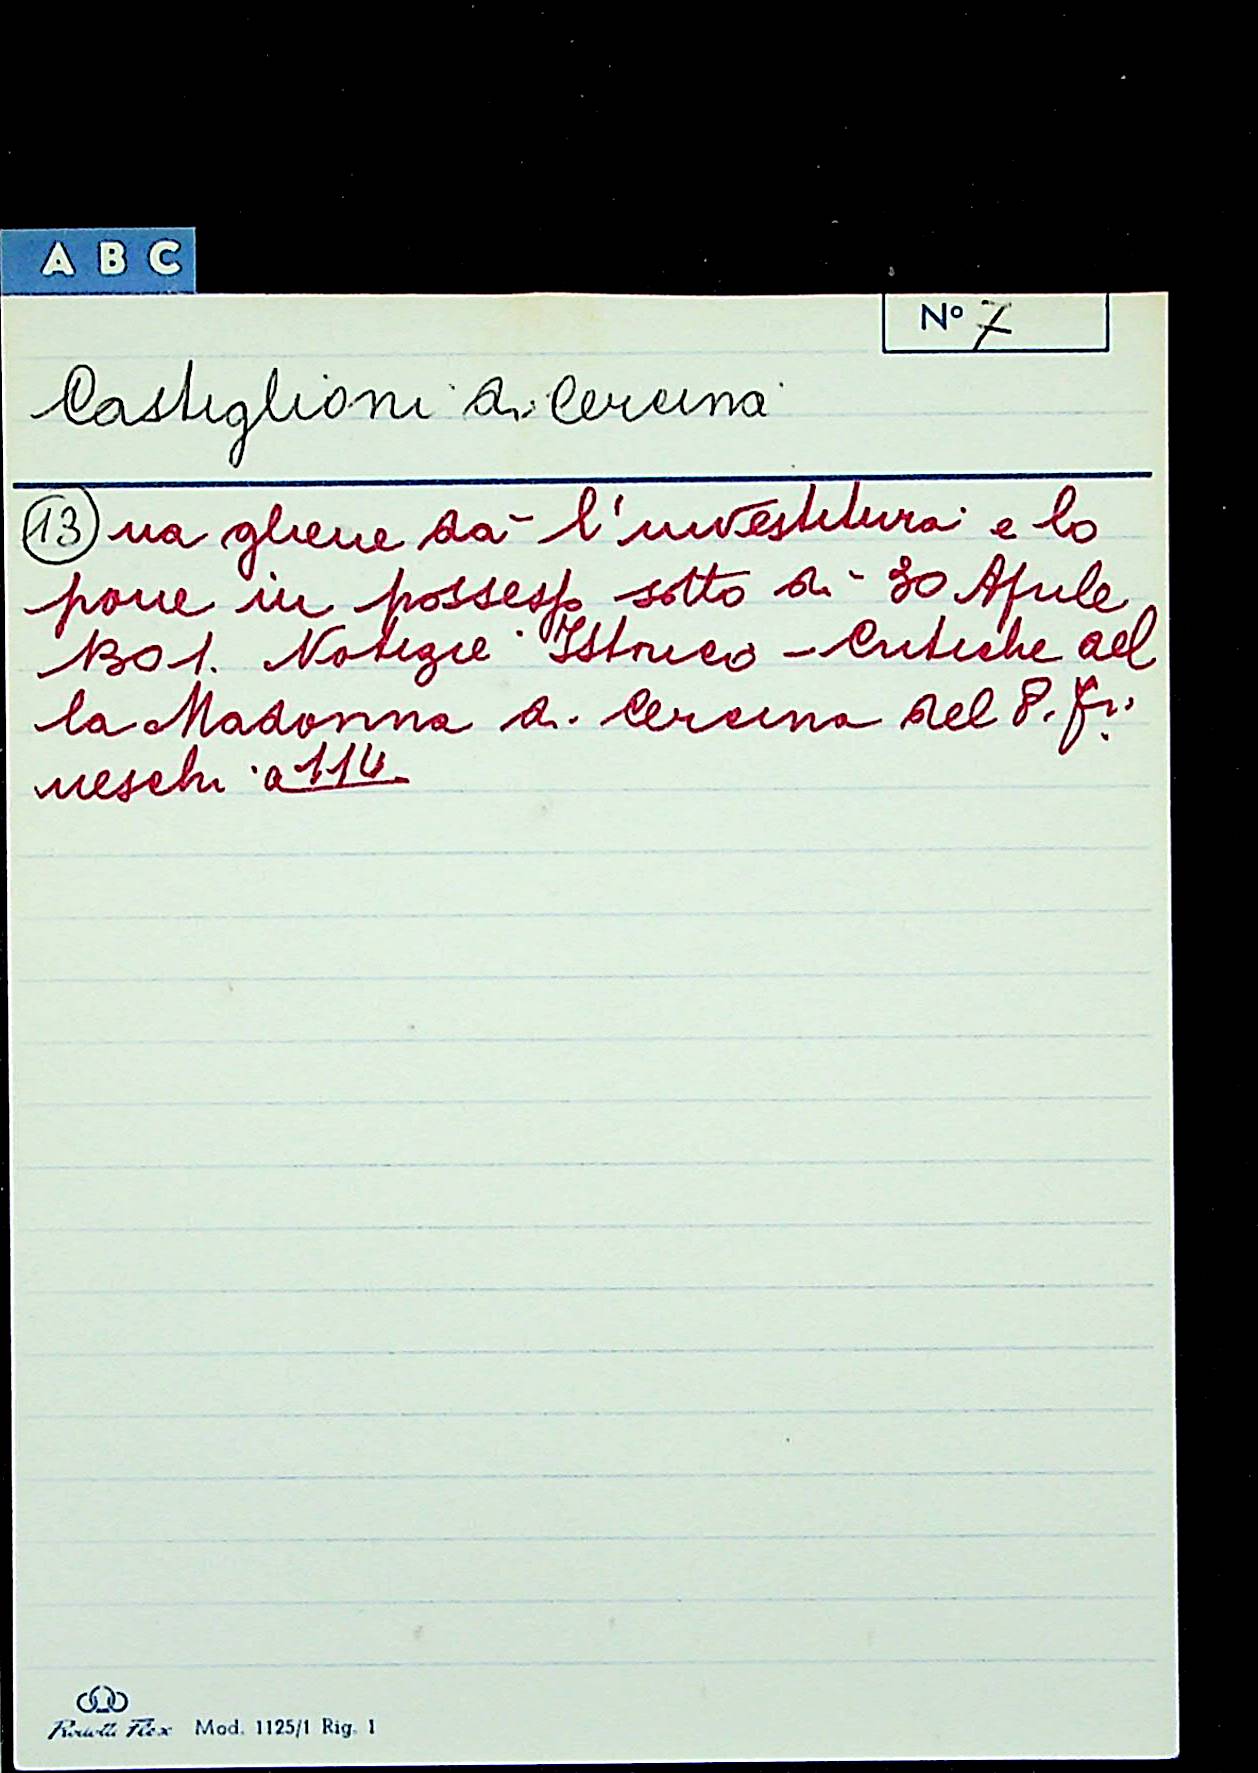 A B C
Nº 7
Castiglioni di Cercina
13 na gliene dà l'investitura e lo
pone in possesso sotto di 30 Aprile
1301. Notizie Istorico - Critiche del
la Madonna di Cercina del P. Fi:
neschi a 114
Mod. 1125/1 Rig. 1